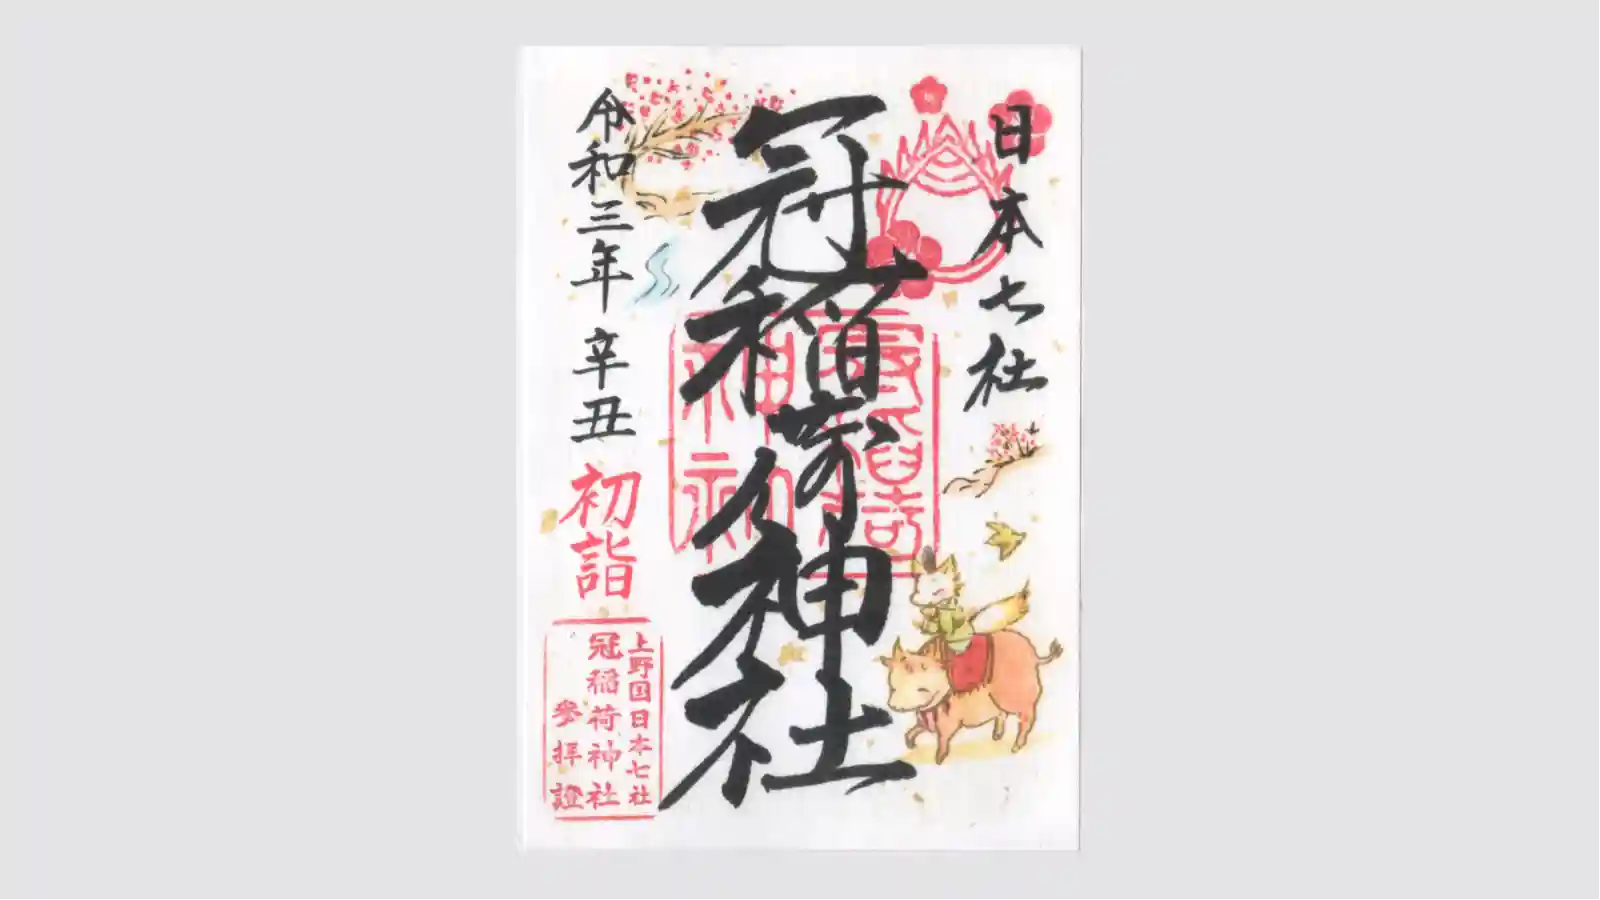 日本七社
冠稲荷神社
令和三年 辛丑
初詣
上野国日本七社
冠稲荷神社
参拝證